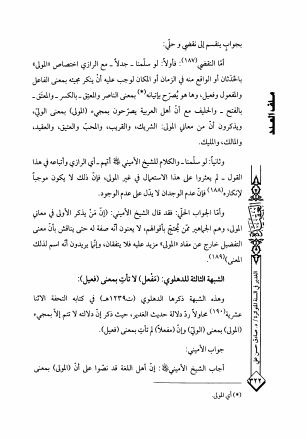 بجوابٍ ينقسم إلى نقضي و حلّي:
أمّا النقضي(١٨٧): فأولاً: لو سلّمنا ـ جدلاً ـ مع الرازي اختصاص «المولى»
بالحَدَثان أو الواقع منه في الزمان أو المكان لوجب عليه أنْ ينكر مجيئه بمعنى الفاعل
والمفعول وفعيل، وها هو يُصرّح بإتيانه(*) بمعنى الناصر والمعتِق ـ بالكسر ـ والمعتَق ـ
بالفتح ـ والحليف مع أنّ أهل العربية يصرّحون بمجيء (المولى) بمعنى الولي
ويذكرون أنّ من معاني المولى: الشريك، والقريب، والمحبّ والعتيق، والعقيد،
والمالك، والمليك.
وثانياً: لو سلّمنا ـ والكلام للشيخ الأميني أنّهم ـ أي الرازي وأتباعه في هذا
القول ـ لم يعثروا على هذا الاستعمال في غير المولى، فإنّ ذلك لا يكون موجباً
لإنكاره(١٨٨) فإنّ عدم الوجدان لا يدّل على عدم الوجود.
وأمّا الجواب الحلّي: فقد قال الشيخ الأميني: (إنّ مَنْ يذكر الأولى في معاني
المولى، وهم الجماهير ممّن يُحتجّ بأقوالهم، لا يعنون أنّه صفة له حتى يناقش بأنّ معنى
التفضيل خارج عن مفاد «المولى» مزيد عليه فلا يتفقان، وإنّما يريدون أنّه اسم لذلك
المعنى)(١٨٩).
الشبهة الثالثة للدهلوي: (مَفْعل) لا تأت بمعنى (فعيل):
وهذه الشبهة ذكرها الدهلوي (ت١٢٣٩هـ) في كتابه التحفة الاثنا
عشرية(١٩٠) محاولاً ردّ دلالة حديث الغدير، حيث ذكر إنّ دلالته لا تتم إلاّ بمجيء
(المولى) بمعنى (الولي) وإنّ (مفعلاً) لم تأت بمعنى (فعيل).
جواب الأميني:
أجاب الشيخ الأميني: إنّ أهل اللغة قد نصّوا على أنّ (المولى) بمعنى
(*) أي المولى.
ملف العدد
الغدير في السنة المتواترة / د. صادق حسن علي
٣٢٢